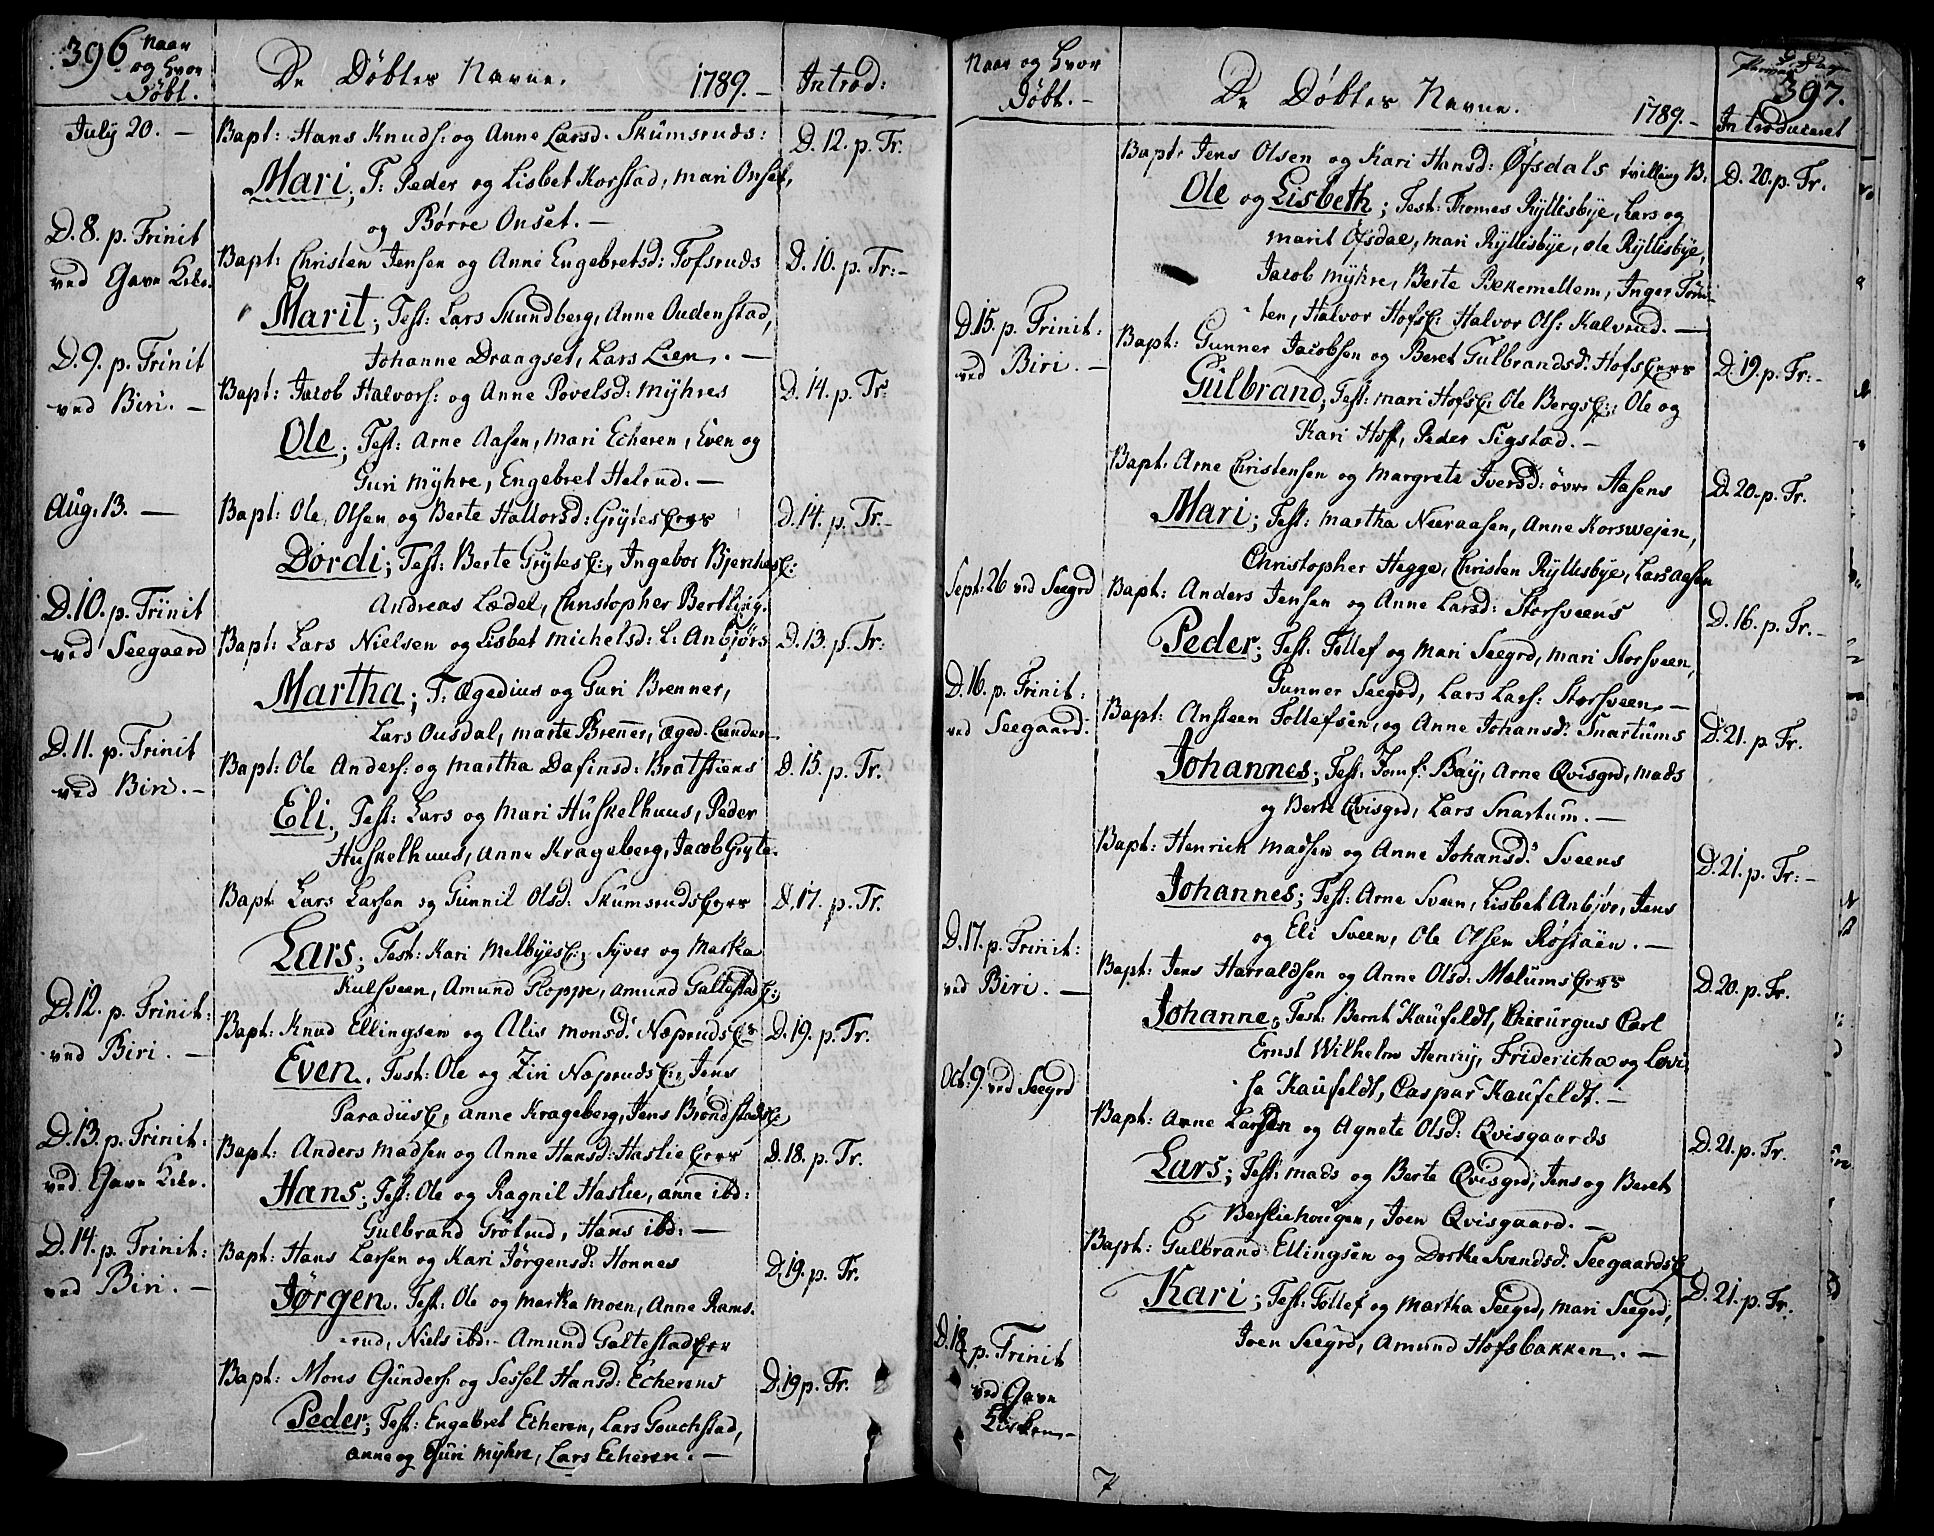 396 Naar
og hvor
Døbt.
De Døbtes Navne. 1789.– Introd:
July 20. –
Bapt: Hans Knuds: og Anne Larsd. Skumsruds:
D. 12. p. Tr.
Mari; T: Peder og Lisbet Korstad, Mari Onset,
og Børre Onset. –
D. 8. p. Trinit
ved Gave Kirk.
Bapt: Christen Jensen og Anne Engebretsd: Tofsruds
D. 10. p. Tr:–
Marit; Test: Lars Skundberg, Anne Oudenstad,
Johanne Draagset, Lars Lien. –
D. 9. p. Trinit
ved Biri. –
Bapt: Jacob Halvors: og Anne Povelsd: Myhres
D. 14. p. Tr:
Ole; Test: Arne Aasen, Mari Echeren, Even og
Guri Myhre, Engebret Helrud. –
Aug. 13. –
Bapt: Ole Olsen og Berte Hallorsd: Grytes
D. 14. p. Tr.–
Dordi; Test: Berte Grytes, Ingebor
Andreas Lædel, Christopher Bertling.
D. 10. p. Trinit
ved Seegaard
Bapt: Lars Nielsen og Lisbet Michelsd: L: Anbjørs
D. 13. p. Tr:
Martha; T: Ægedius og Guri Brenner,
Lars Ousdal, Marte Brenner, Æged. Lunden.
D. 11. p. Trinit
ved Biri. –
Bapt: Ole Anders: og Martha Dafinsd: Bratstiens
D. 15. p. Tr.
Eli; Test: Lars og Mari Huskelhuus, Peder
Huskelhuus, Anne Krageberg, Jacob Gryte.
Bapt. Lars Larsen og Gunnil Olsd: Skumsruds
D. 17. p. Tr.
Lars; Test: Kari Melbyes, Syver og Martha
Kulsveen, Amund Gloppe, Amund Galtestad
D. 12. p. Trinit:
ved Biri. –
Bapt: Knud Ellingsen og Alis Monsd: Næpruds
D. 19. p. Tr.
Even. Test: Ole og Ziri Næpruds, Jens
Paradiis, Anne Krageberg, Jens Brøndstads
D. 13. p. Trinit:
ved Gave Kirk.
Bapt: Anders Madsen og Anne Hansd: Haslie
D. 18. p. Tr.
Hans; Test: Ole og Ragnil Haslie, Anne ibd:
Gulbrand Grøtrud, Hans ibd: –
D. 14. p. Trinit:
ved Biri. –
Bapt: Hans Larsen og Kari Jørgensd: Honnes
D. 19. p. Tr.
Jørgen. Test: Ole og Martha Moen, Anne Rams-
rud, Niels ibd:– Amund Galtestad
Bapt: Mons Gunders: og Sessel Hansd: Echerens
D. 19 p. Tr.
Peder; Test: Engebret Echeren, Lars Gouchstad,
Anne og Guri Myhre, Lars Echeren. –
Naar og hvor
Døbt. –
De Døbtes Navne. 1789.–
397.
Introduceret
Bapt. Jens Olsen og Kari Hansd: Øfsdals tvilling B:
D. 20. p. Tr.
Ole og Lisbeth; Test: Thomes Ryllisbye, Lars og
Marit Øfsdal, Mari Ryllisbye, Ole Ryllisbye,
Jacob Myhre, Berte Bekemellem, Inger
ten, Halvor Hofs: Halvor Ols: Kalvrud. –
D. 15. p. Trinit:
ved Biri. –
Bapt: Gunner Jacobsen og Beret Gulbrandsd: Hofs
D. 19. p. Tr:–
Gulbrand; Test: Mari Hofs: Ole Bergs:, Ole og
Kari Hoff, Peder Sigstad. –
Bapt: Arne Christensen og Margrete Iversd: øvre Aasens
D. 20. p. Tr.
Mari; Test: Martha Neeraasen, Anne Korswejen,
Christopher Hegge, Christen Ryllisbye, Lars Aasen
Sept: 26 ved Seegrd
Bapt: Anders Jensen og Anne Larsd: Storsveens
D. 16. p. Tr.–
Peder; Test. Tollef og Mari Seegrd, Mari Storsveen,
Gunner Seegrd, Lars Lars: Storsveen. –
D. 16. p. Trinit:
ved Seegaard:
Bapt: Ansteen Tollefsen, og Anne Johansd: Snartums
D. 21. p Tr.
Johannes; Test: Jomf: Bay, Arne Qvisgrd, Mads
og Berte Qvisgrd, Lars Snartum. –
Bapt: Henrich Madsen og Anne Johansd: Sveens
D. 21. p. Tr:–
Johannes; Test: Arne Sveen, Lisbet Anbjør, Jens
og Eli Sveen, Ole Olsen Røstøen. –
D. 17. p. Trinit:
ved Biri. –
Bapt: Jens Harraldsen og Anne Olsd: Melums
D. 20. p. Tr.
Johanne; Test: Bernt Kaufeldt, Chirurgus Carl
Ernst Wilhelm Henny, Fridericha og Lovi-
sa Kaufeldt, Caspar Kaufeldt. –
Oct: 9. ved Seegrd
Bapt: Arne Larsen og Agnete Olsd: Qvisgaards
D. 21. p. Tr.
Lars; Test: Mads og Berte Qvisgrd, Jens og Beret
Bersliehougen, Joen Qvisgaard. –
Bapt: Gulbrand Ellingsen og Dorthe Svendsd. Seegaards
D. 21. p. Tr.
Kari; Test: Tollef og Martha Seegrd, Mari Seegrd,
Joen Seegrd, Amund Hofsbakken. –
D. 18. p. Trinit
ved Gave
Kirken. –